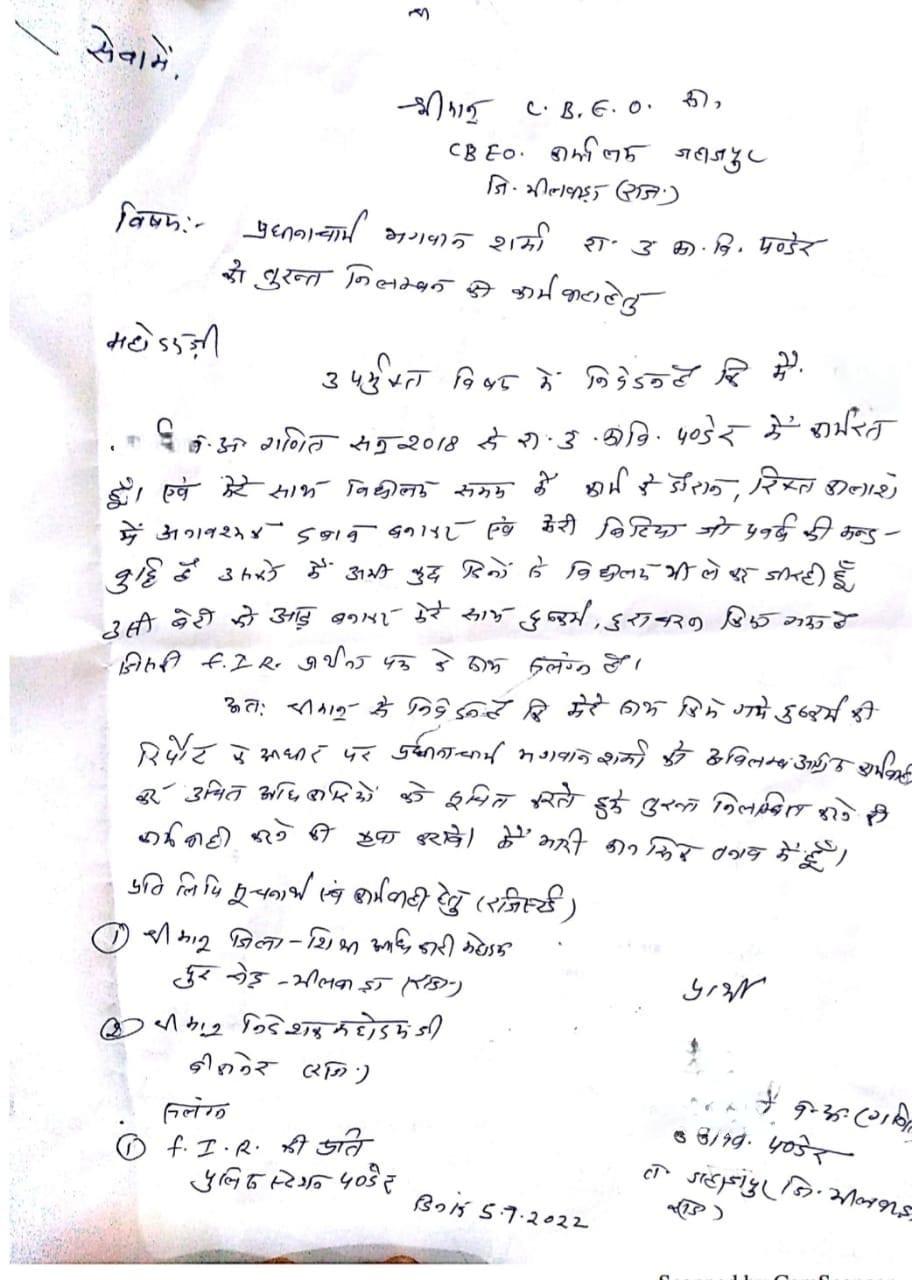 सेवामें,
श्रीमान् C. B. E. O. सा,
CBEO. कार्यालय जहाजपुर
जि. भीलवाड़ा (राज.)
विषय:- प्रधानाचार्य भगवान शर्मा रा. उ मा. वि. पण्डेर
को तुरन्त निलम्बन की कार्यवाही हेतु
महोदयजी
उपर्युक्त विषय में निवेदन है कि मैं.
व.अ गणित सन् 2018 से रा. उ. मा वि. पण्डेर में कार्यरत
हूँ। एवं मेरे साथ विद्यालय समय में कार्य के दौरान, रिक्त कालांश
में अनावश्यक दबाव बनाकर एवं मेरी बिटिया जो की मन्द-
बुद्धि है उसको मैं अभी कुछ दिनों से विद्यालय भी ले कर जा रही हूँ
उसी बेटी को आड़ बनाकर मेरे साथ दुष्कर्म, दुराचरण किया गया है
जिसकी F.I.R. प्रार्थना पत्र के साथ संलग्न है।
अत: श्रीमान् से निवेदन है कि मेरे साथ किये गये दुष्कर्म की
रिपोर्ट के आधार पर प्रधानाचार्य भगवान शर्मा को अविलम्ब कार्यवाही
कर उचित अधिकारियों को सूचित करते हुये तुरन्त निलम्बित करने की
कार्यवाही करने की कृपा करावे। मैं भारी मानसिक तनाव में हूँ।
प्रति लिपि सूचनार्थ एवं कार्यवाही हेतु (रजिस्टर्ड)
① श्रीमान् जिला-शिक्षा अधिकारी महोदय
पुर रोड़ - भीलवाड़ा (राज.)
② श्रीमान् निदेशक महोदय जी
बीकानेर (राज.)
प्रार्थी
संलग्न
① F. I. R. की प्रति
पुलिस स्टेशन पण्डेर
व.अ. (गणित
पण्डेर
त. जहाजपुर जि. भीलवाड़ा
(राज)
दिनांक 5.7.2022